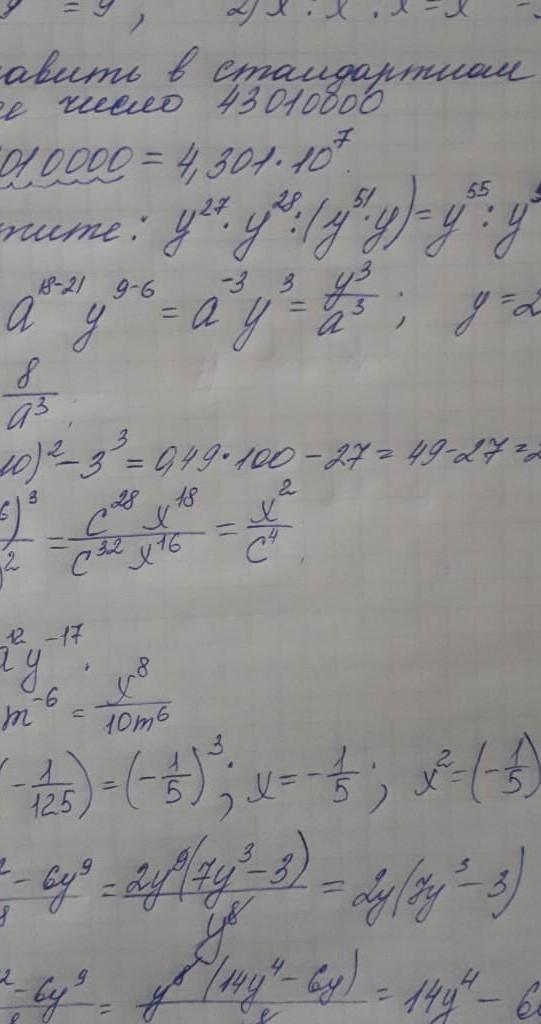 = y , 2) x : x . x = x
авить в стандартном
число 43010000
010000 = 4,301·10⁷
тите: y²⁷·y²⁸:(y⁵¹·y)=y⁵⁵:y⁵
a¹⁸⁻²¹ y⁹⁻⁶ = a⁻³ y³ = y³/a³ ; y = 2
8/a³ ;
10)²-3³ = 0,49·100-27 = 49-27 = 2
6)³/² = c²⁸ x¹⁸/c³² x¹⁶ = x²/c⁴
a¹² y⁻¹⁷ .
m⁻⁶ = x⁸/10m⁶
(-1/125) = (-1/5)³ ; x = -1/5 ; x² = (-1/5)
² - 6y⁹/⁸ = 2y⁹(7y³-3)/y⁸ = 2y(7y³-3)
² - 6y⁹ = y⁸(14y⁴-6y) = 14y⁴ - 6